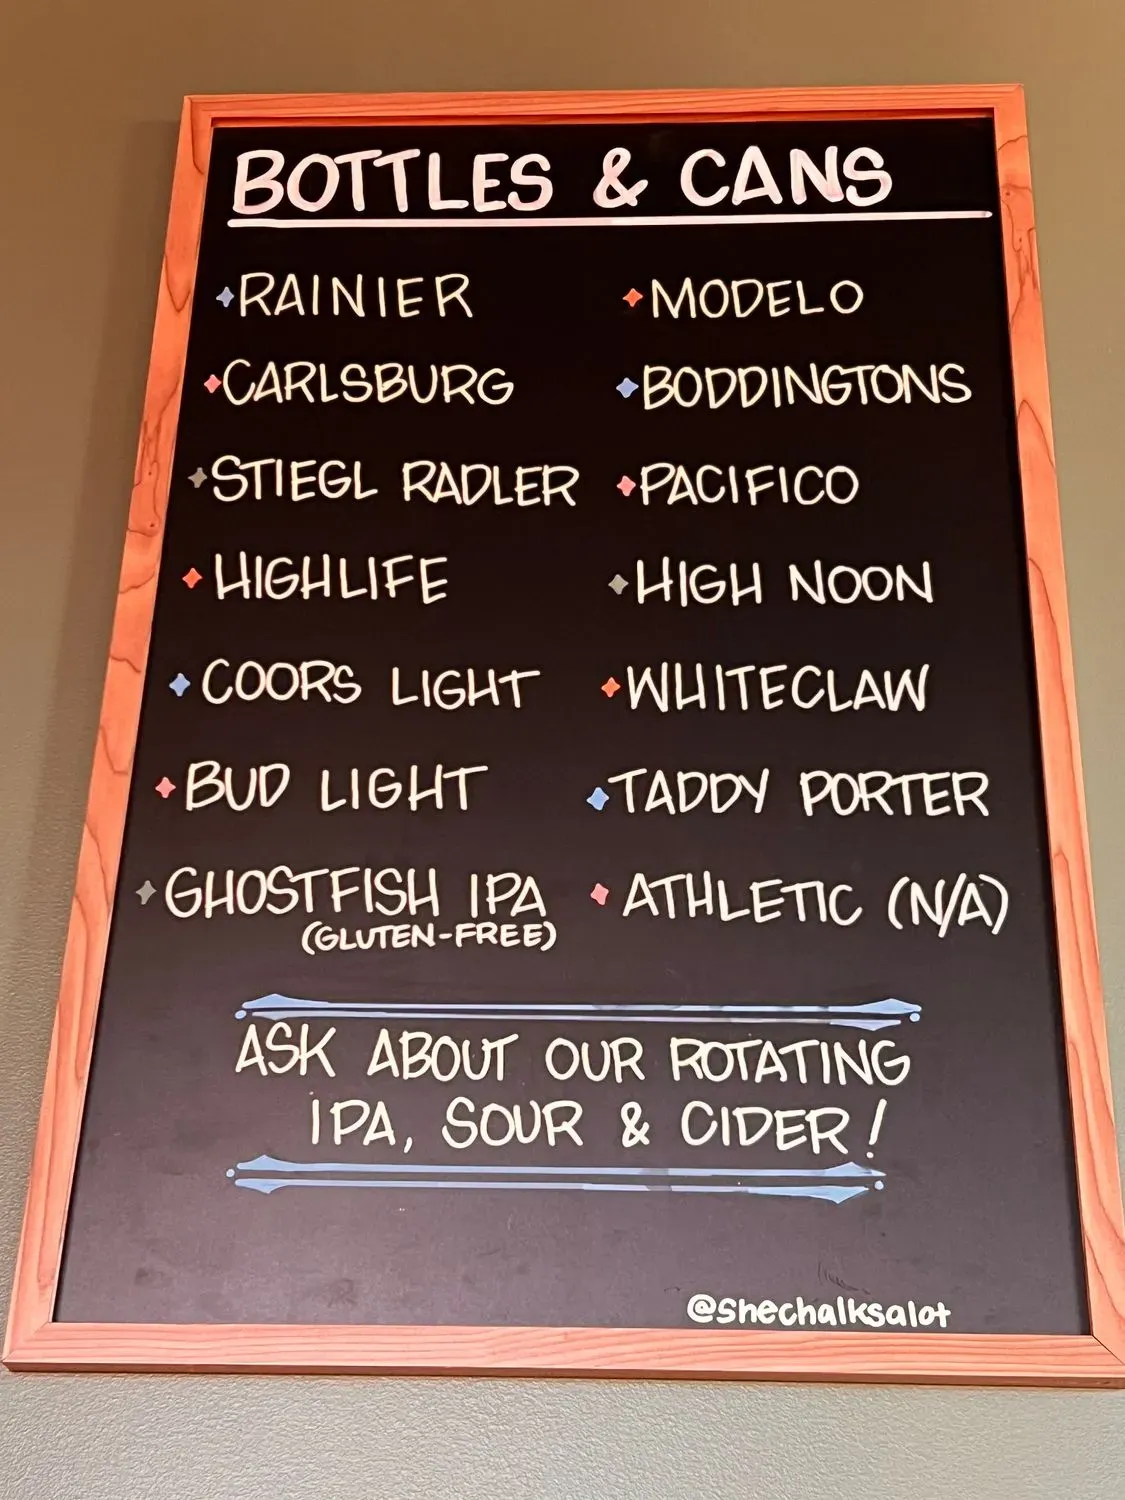 BOTTLES & CANS
RAINIER
CARLSBURG
STIEGL RADLER
HIGHLIFE
COORS LIGHT
BUD LIGHT
GHOSTFISH IPA
(GLUTEN-FREE)
MODELO
BODDINGTONS
PACIFICO
HIGH NOON
WHITECLAW
TADDY PORTER
ATHLETIC (N/A)
ASK ABOUT OUR ROTATING
IPA, SOUR & CIDER!
@shechalksalot